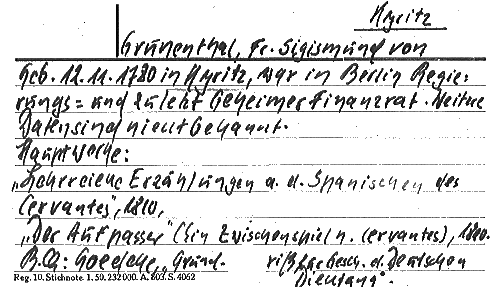 Kyritz
Grünenthal, Fr. Sigismund von
Geb. 12.11.1780 in Kyritz, war in Berlin Regie=
rungs= und zuletzt Geheimer Finanzrat. Weitere
Daten sind nicht bekannt.
Hauptwerke:
„Lehrreiche Erzählungen a. d. Spanischen des
Cervantes", 1810,
„Der Aufpasser" (Ein Zwischenspiel n. Cervantes), 1810.
B.Ch: Goedeke, „Grund.
riß z. Gesch. d. Deutschen
Dichtung".
Reg. 10. Stichnote 1.59. 232000. A. 803. S. 4062